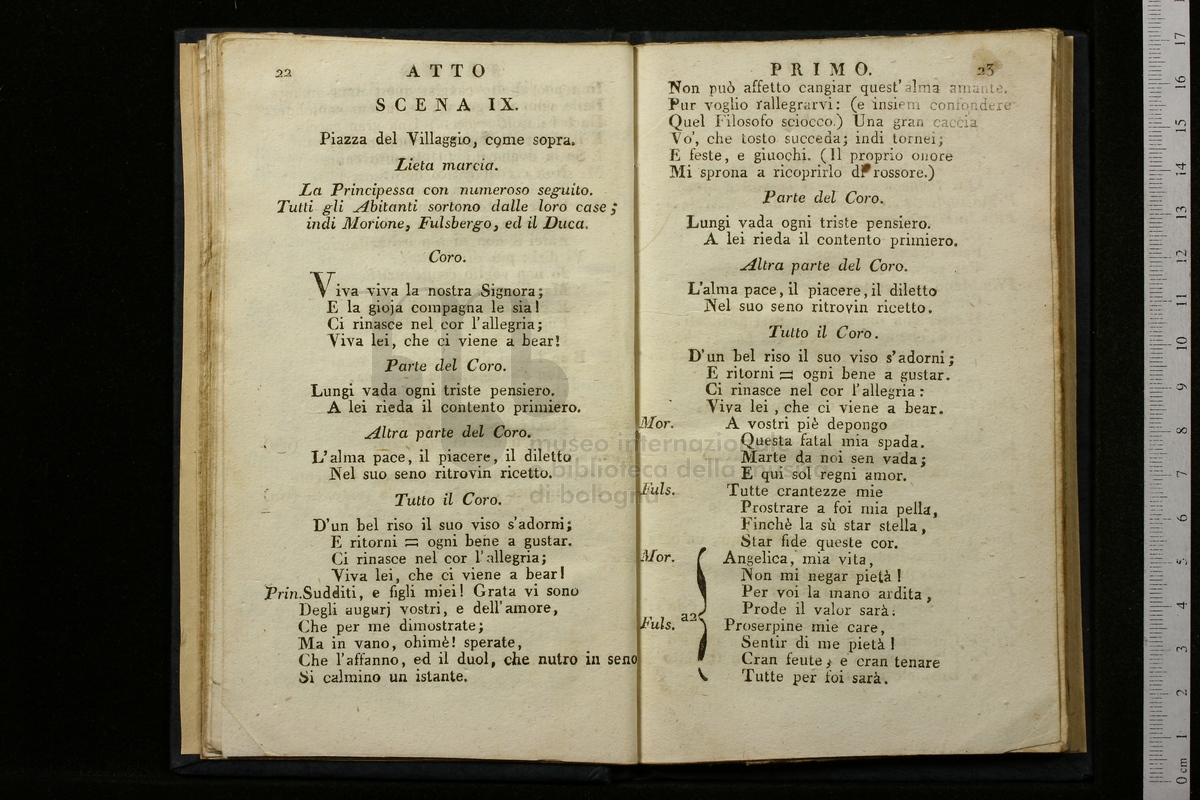 22
ATTO
SCENA IX.
Piazza del Villaggio, come sopra.
Lieta marcia.
La Principessa con numeroso seguito.
Tutti gli Abitanti sortono dalle loro case;
indi Morione, Fulsbergo, ed il Duca.
Coro.
Viva viva la nostra Signora;
E la gioja compagna le sia!
Ci rinasce nel cor l'allegria;
Viva lei, che ci viene a bear!
Parte del Coro.
Lungi vada ogni triste pensiero.
A lei rieda il contento primiero.
Altra parte del Coro.
L'alma pace, il piacere, il diletto
Nel suo seno ritrovin ricetto.
Tutto il Coro.
D'un bel riso il suo viso s'adorni;
E ritorni = ogni bene a gustar.
Ci rinasce nel cor l'allegria;
Viva lei, che ci viene a bear!
Prin. Sudditi, e figli miei! Grata vi sono
Degli augurj vostri, e dell'amore,
Che per me dimostrate;
Ma in vano, ohimè! sperate,
Che l'affanno, ed il duol, che nutro in seno
Si calmino un istante.
PRIMO.
23
Non può affetto cangiar quest'alma amante.
Pur voglio rallegrarvi: (e insiem confondere
Quel Filosofo sciocco.) Una gran caccia
Vo', che tosto succeda; indi tornei;
E feste, e giuochi. (Il proprio onore
Mi sprona a ricoprirlo di rossore.)
Parte del Coro.
Lungi vada ogni triste pensiero.
A lei rieda il contento primiero.
Altra parte del Coro.
L'alma pace, il piacere, il diletto
Nel suo seno ritrovin ricetto.
Tutto il Coro.
D'un bel riso il suo viso s'adorni;
E ritorni = ogni bene a gustar.
Ci rinasce nel cor l'allegria:
Viva lei, che ci viene a bear.
Mor. A vostri piè depongo
Questa fatal mia spada.
Marte da noi sen vada;
E qui sol regni amor.
Fuls. Tutte crantezze mie
Prostrare a foi mia pella,
Finchè la sù star stella,
Star fide queste cor.
Mor. Angelica, mia vita,
Non mi negar pietà!
Per voi la mano ardita,
Prode il valor sarà.
Fuls. a2 Proserpine mie care,
Sentir di me pietà!
Cran feute, e cran tenare
Tutte per foi sarà.
museo internazionale
biblioteca della musica
di bologna
17
16
15
14
13
12
11
10
9
8
7
6
5
4
3
2
1
0 cm